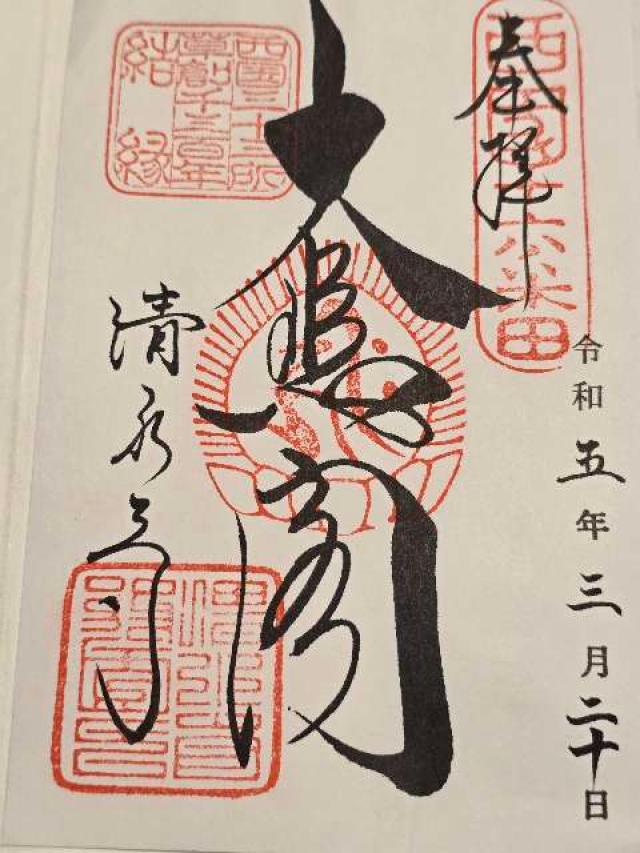 奉拝
西国第十六番
令和五年三月二十日
大悲閣
西国三十三所
草創千三百年
結縁
清水寺